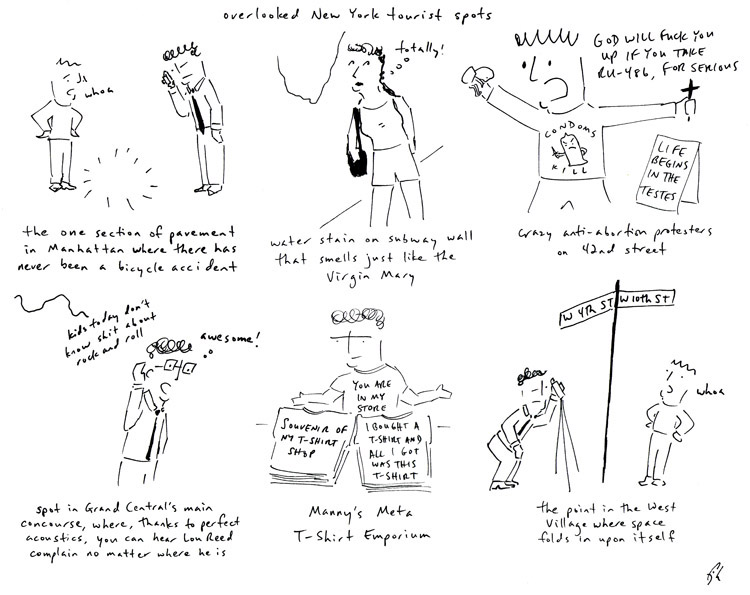 overlooked New York tourist spots
whoa
the one section of pavement
in Manhattan where there has
never been a bicycle accident
totally!
water stain on subway wall
that smells just like the
Virgin Mary
GOD WILL FUCK YOU
UP IF YOU TAKE
RU-486, FOR SERIOUS
CONDOMS
KILL
LIFE
BEGINS
IN THE
TESTES
crazy anti-abortion protesters
on 42nd street
kids today don't
know shit about
rock and roll
awesome!
spot in Grand Central's main
concourse, where, thanks to perfect
acoustics, you can hear Lou Reed
complain no matter where he is
YOU ARE
IN MY
STORE
SOUVENIR OF
NY T-SHIRT
SHOP
I BOUGHT A
T-SHIRT AND
ALL I GOT
WAS THIS
T-SHIRT
Manny's Meta
T-Shirt Emporium
W 4TH ST
W 10TH ST
whoa
the point in the West
Village where space
folds in upon itself